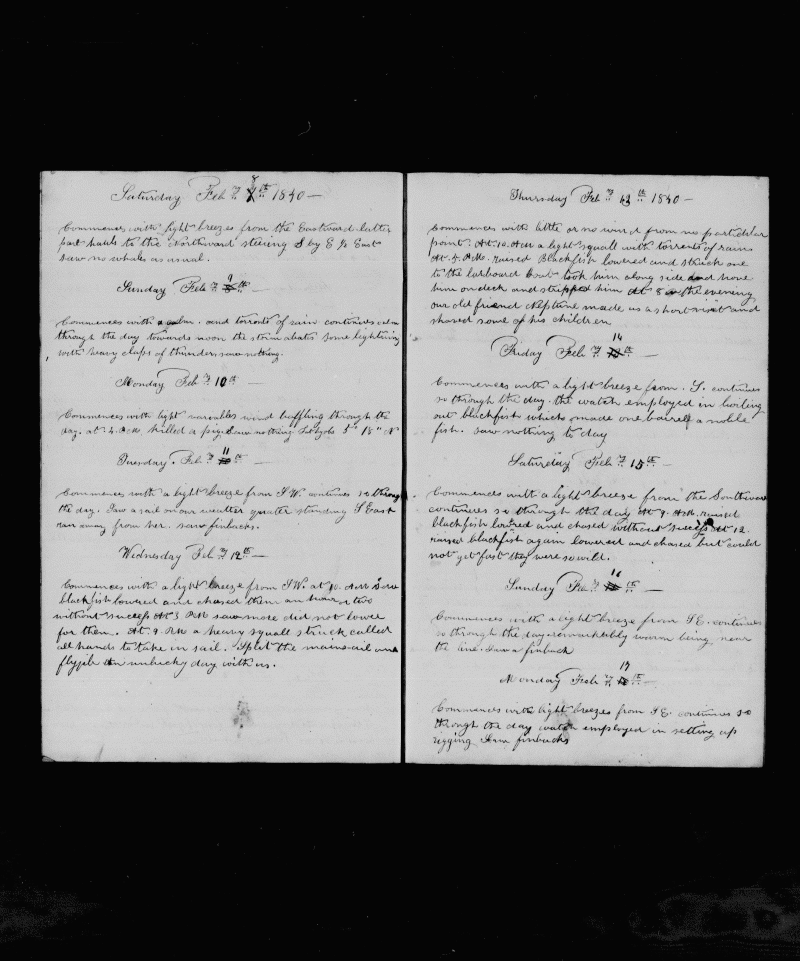 Saturday Feby 8th 1840 —
Commences with light breezes from the Eastward latter
part hauls to the Northward steering S by E ½ East
saw no whales as usual.
Sunday Feby 9th —
Commences with a calm. and torrents of rain continues calm
through the day towards noon the storm abates some lightning
with heavy claps of thunder, saw nothing.
Monday Feby 10th —
Commences with light variables wind baffling through the
day. at 4. P.M. killed a pig. Saw nothing Lat by ob 5° 18" N
Tuesday. Feby 11th —
Commences with a light breeze from S W. continues so through
the day. Saw a sail on our weather quater standing S East
ran away from her. saw finbacks.
Wednesday Feby 12th —
Commences with a light breeze from SW. at 10. A.M Saw
blackfish lowred and chased them an hour or two
without success At 3 P.M saw more did not lower
for them. At. 9 P.M a heavy squall struck called
all hands to take in sail. Split the mainsail and
flyjib An unlucky day with us.
Thursday Feby 13th 1840 —
Commences with little or no wind from no particular
point. At. 10. A.M a light squall with torrents of rain
At. 4. P.M. raised Blackfish lowered and struck one
to the larboard boat took him along side and hove
him on deck and stripped him At 8 in the evening
our old friend Neptune made us a short visit and
shaved some of his children
Friday Feby 14th —
Commences with a light breeze from. S. continues
so through the day. the watch employed in boiling
out blackfish which made one, barell, a noble
fish. saw nothing to day
Saturday Feby 15th —
Commences with a light breeze from the Southward
continues so through the day At 9. A.M. raised
blackfish lowred and chased without success At 12.
raised blackfish again lowered and chased but could
not get fast they were so wild.
Sunday Feby 16th —
Commences with a light breeze from S E. continues
so through the day. remarkably warm being near
the line. Saw a finback
Monday Feby 17th —
Commences with light breezes from S E. continues so
through the day watch employed in setting up
rigging Saw finbacks